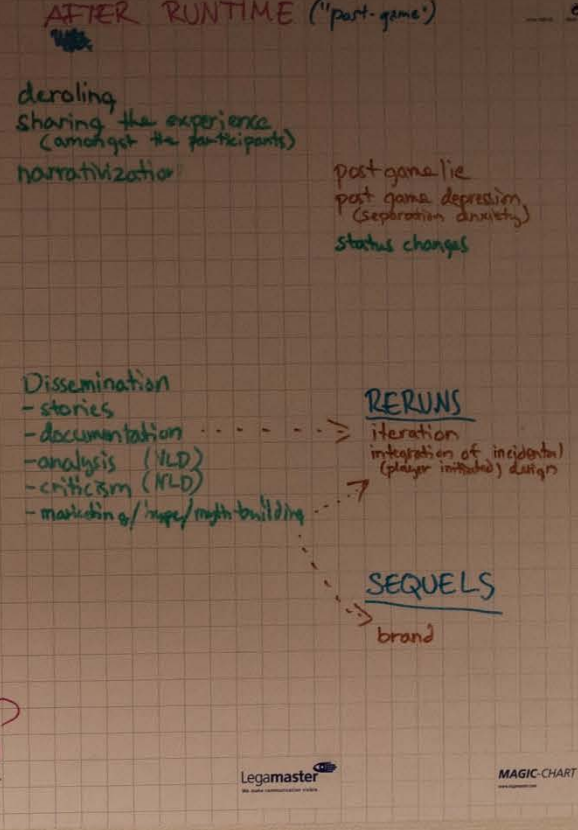 AFTER RUNTIME ("post-game")
deroling
sharing the experience
(amongst the participants)
narrativization
post game lie
post game depression
(separation anxiety)
status changes
Dissemination
- stories
- documentation
- analysis (NLD)
- criticism (NLD)
- marketing/hype/myth-building
RERUNS
iteration
integration of incidental
(player initiated) design
SEQUELS
brand
Legamaster
MAGIC-CHART